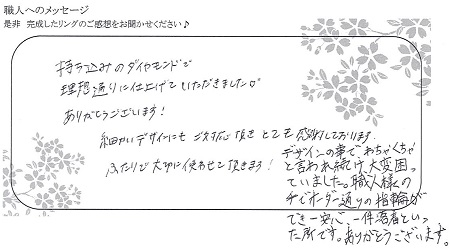 職人へのメッセージ
是非 完成したリングのご感想をお聞かせください♪
持ち込みのダイヤモンドで
理想通りに仕上げていただきました。
ありがとうございます！
細かいデザインにもご対応頂きとても感謝しております。
ふたりで大切に使わせて頂きます！
デザインの事で、わちゃくちゃ
と言われ続け、大変困っ
ていました。職人様の
手でオーダー通りの指輪が
でき一安心、一件落着といっ
た所です。ありがとうございます。